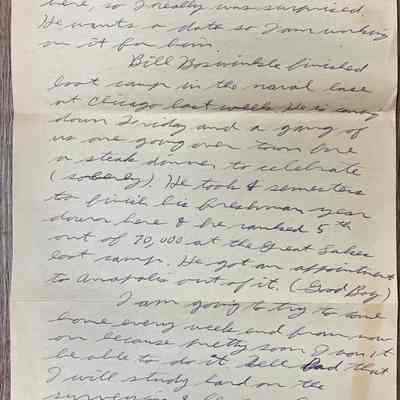 here, so I really was surprised.
He wants a date so I am working
on it for him.
Bill Boswinkle finished
boot camp in the naval base
at Chicago last week. He is coming
down Friday and a gang of
us are going over town for
a steak dinner to celebrate
(soberly). He took 4 semesters
to finish his freshman year
down here & he ranked 5th
out of 70,000 at the Great Lakes
boot camp. He got an appointment
to Anapolis out of it. (Good Boy)
I am going to try to come
home every week end from now
on because pretty soon I won't
be able to do it. Tell Dad that
I will study hard on the